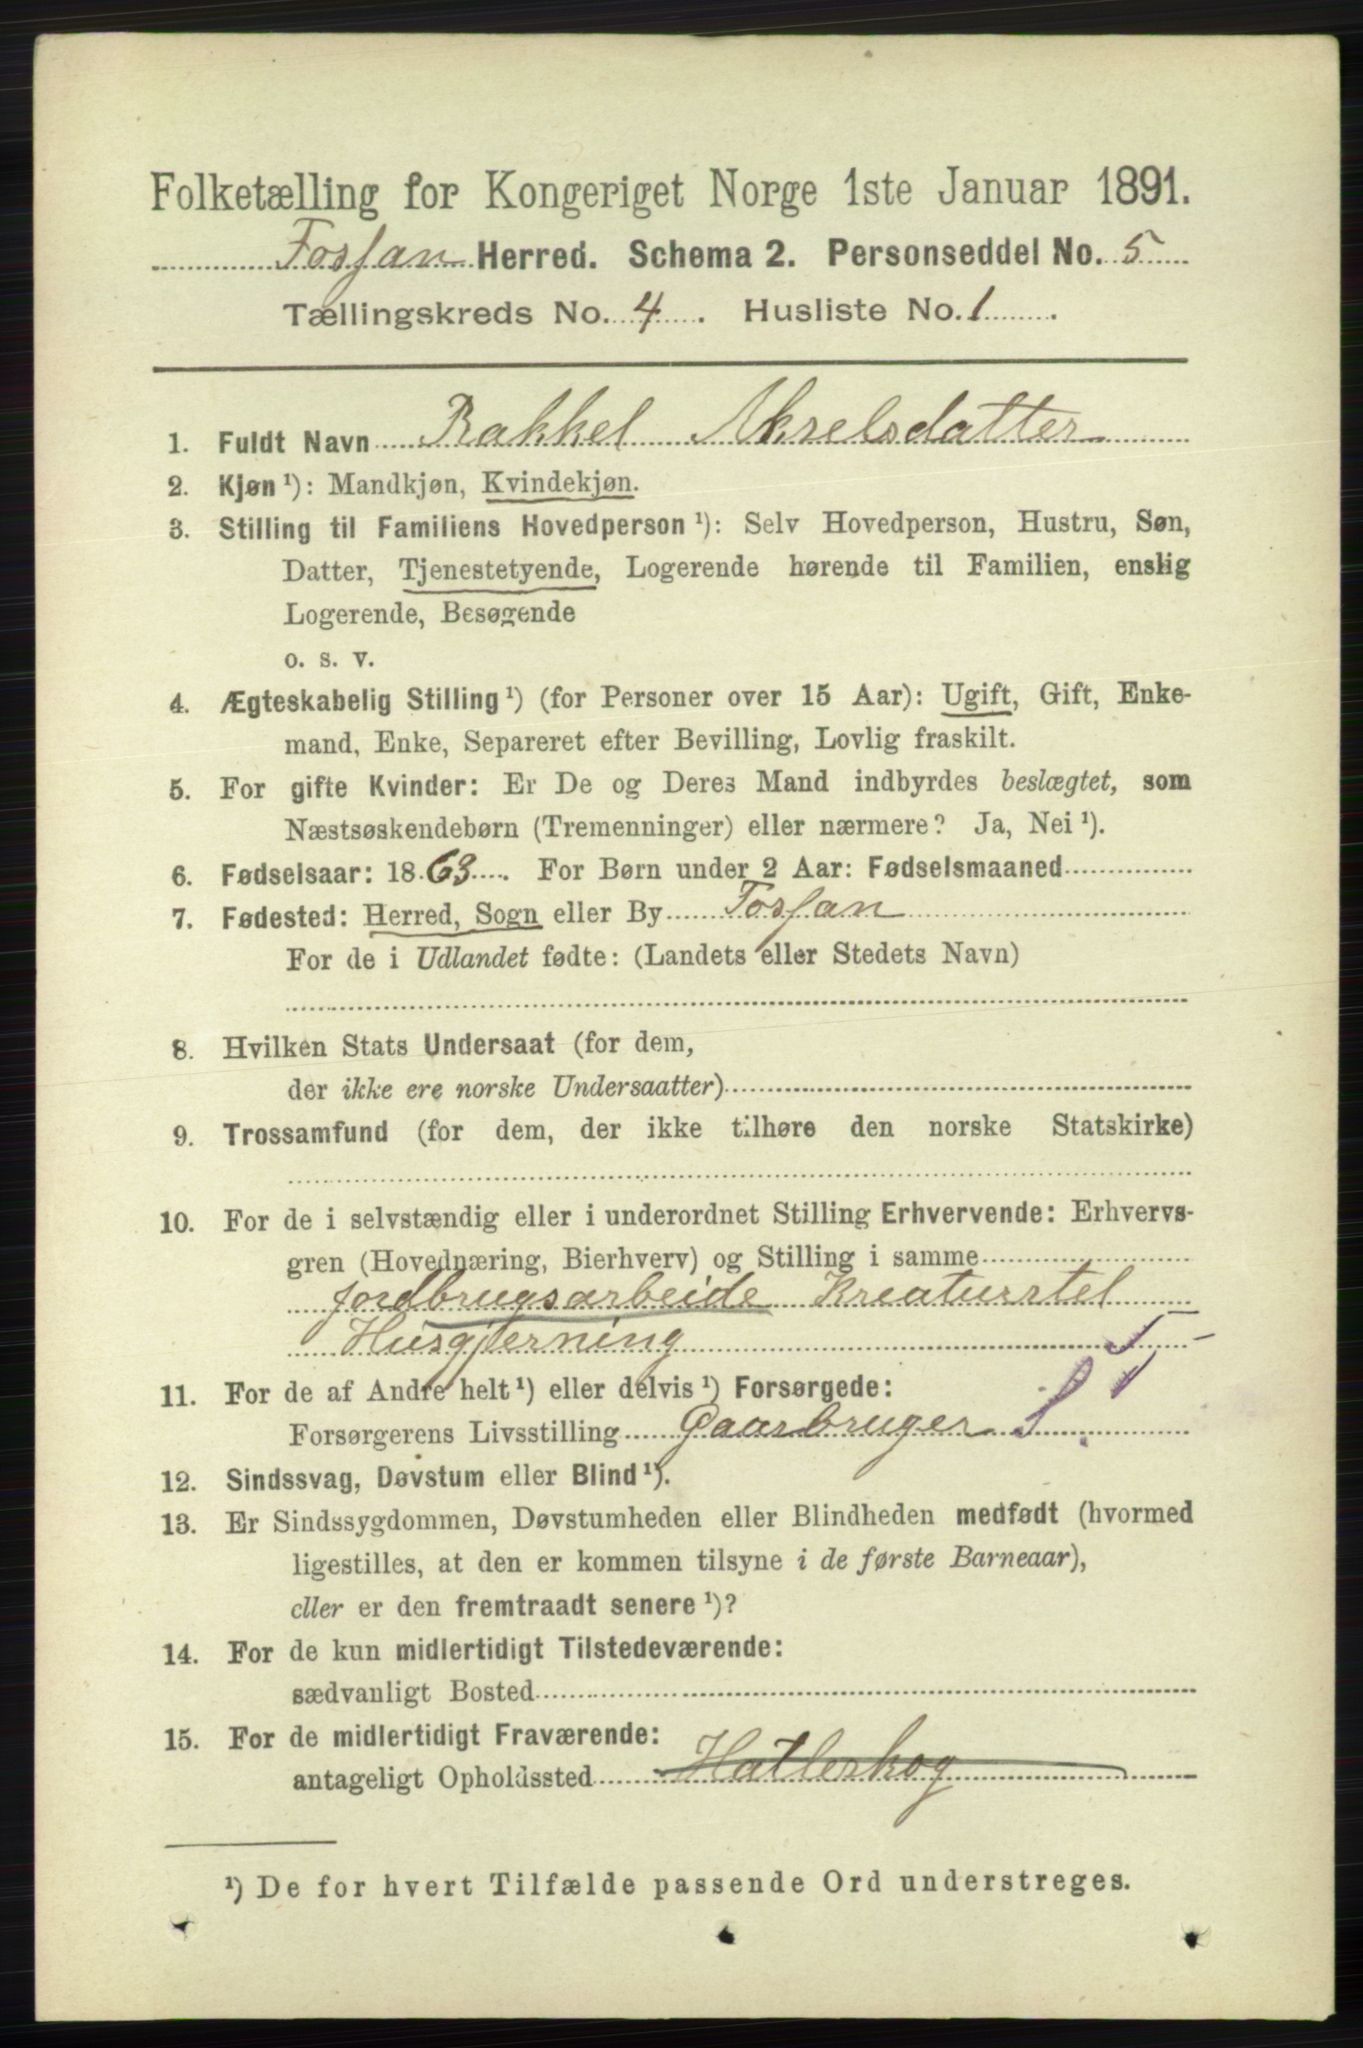 Folketælling for Kongeriget Norge 1ste Januar 1891.
Fossan Herred. Schema 2. Personseddel No. 5
Tællingskreds No. 4. Husliste No. 1.
1. Fuldt Navn Rakkel Akselsdatter
2. Kjøn ¹): Mandkjøn, Kvindekjøn.
3. Stilling til Familiens Hovedperson ¹): Selv Hovedperson, Hustru, Søn,
Datter, Tjenestetyende, Logerende hørende til Familien, enslig
Logerende, Besøgende
o. s. v.
4. Ægteskabelig Stilling ¹) (for Personer over 15 Aar): Ugift, Gift, Enke-
mand, Enke, Separeret efter Bevilling, Lovlig fraskilt.
5. For gifte Kvinder: Er De og Deres Mand indbyrdes beslægtet, som
Næstsøskendebørn (Tremenninger) eller nærmere? Ja, Nei ¹).
6. Fødselsaar: 1863. For Børn under 2 Aar: Fødselsmaaned
7. Fødested: Herred, Sogn eller By Fossan
For de i Udlandet fødte: (Landets eller Stedets Navn)
8. Hvilken Stats Undersaat (for dem,
der ikke ere norske Undersaatter)
9. Trossamfund (for dem, der ikke tilhøre den norske Statskirke)
10. For de i selvstændig eller i underordnet Stilling Erhvervende: Erhvervs-
gren (Hovednæring, Bierhverv) og Stilling i samme
Jordbrugsarbeide Kreaturstel
Husgjerning
11. For de af Andre helt ¹) eller delvis ¹) Forsørgede:
Forsørgerens Livsstilling Gaarbruger S
12. Sindssvag, Døvstum eller Blind ¹).
13. Er Sindssygdommen, Døvstumheden eller Blindheden medfødt (hvormed
ligestilles, at den er kommen tilsyne i de første Barneaar),
eller er den fremtraadt senere ¹)?
14. For de kun midlertidigt Tilstedeværende:
sædvanligt Bosted
15. For de midlertidigt Fraværende:
antageligt Opholdssted Hatleskog
¹) De for hvert Tilfælde passende Ord understreges.